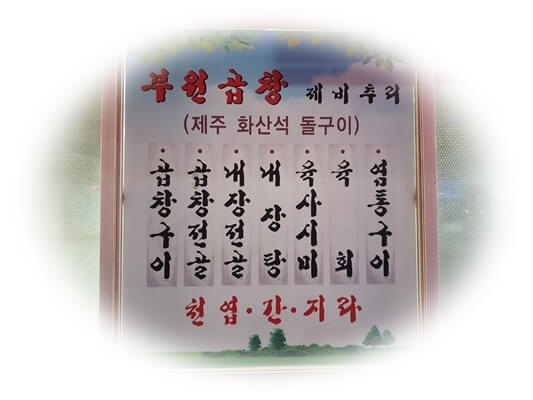 부원곱창 제비추리
(제주 화산석 돌구이)
곱창구이
곱창전골
내장전골
내장탕
육사시미
육회
염통구이
천엽·간·지라